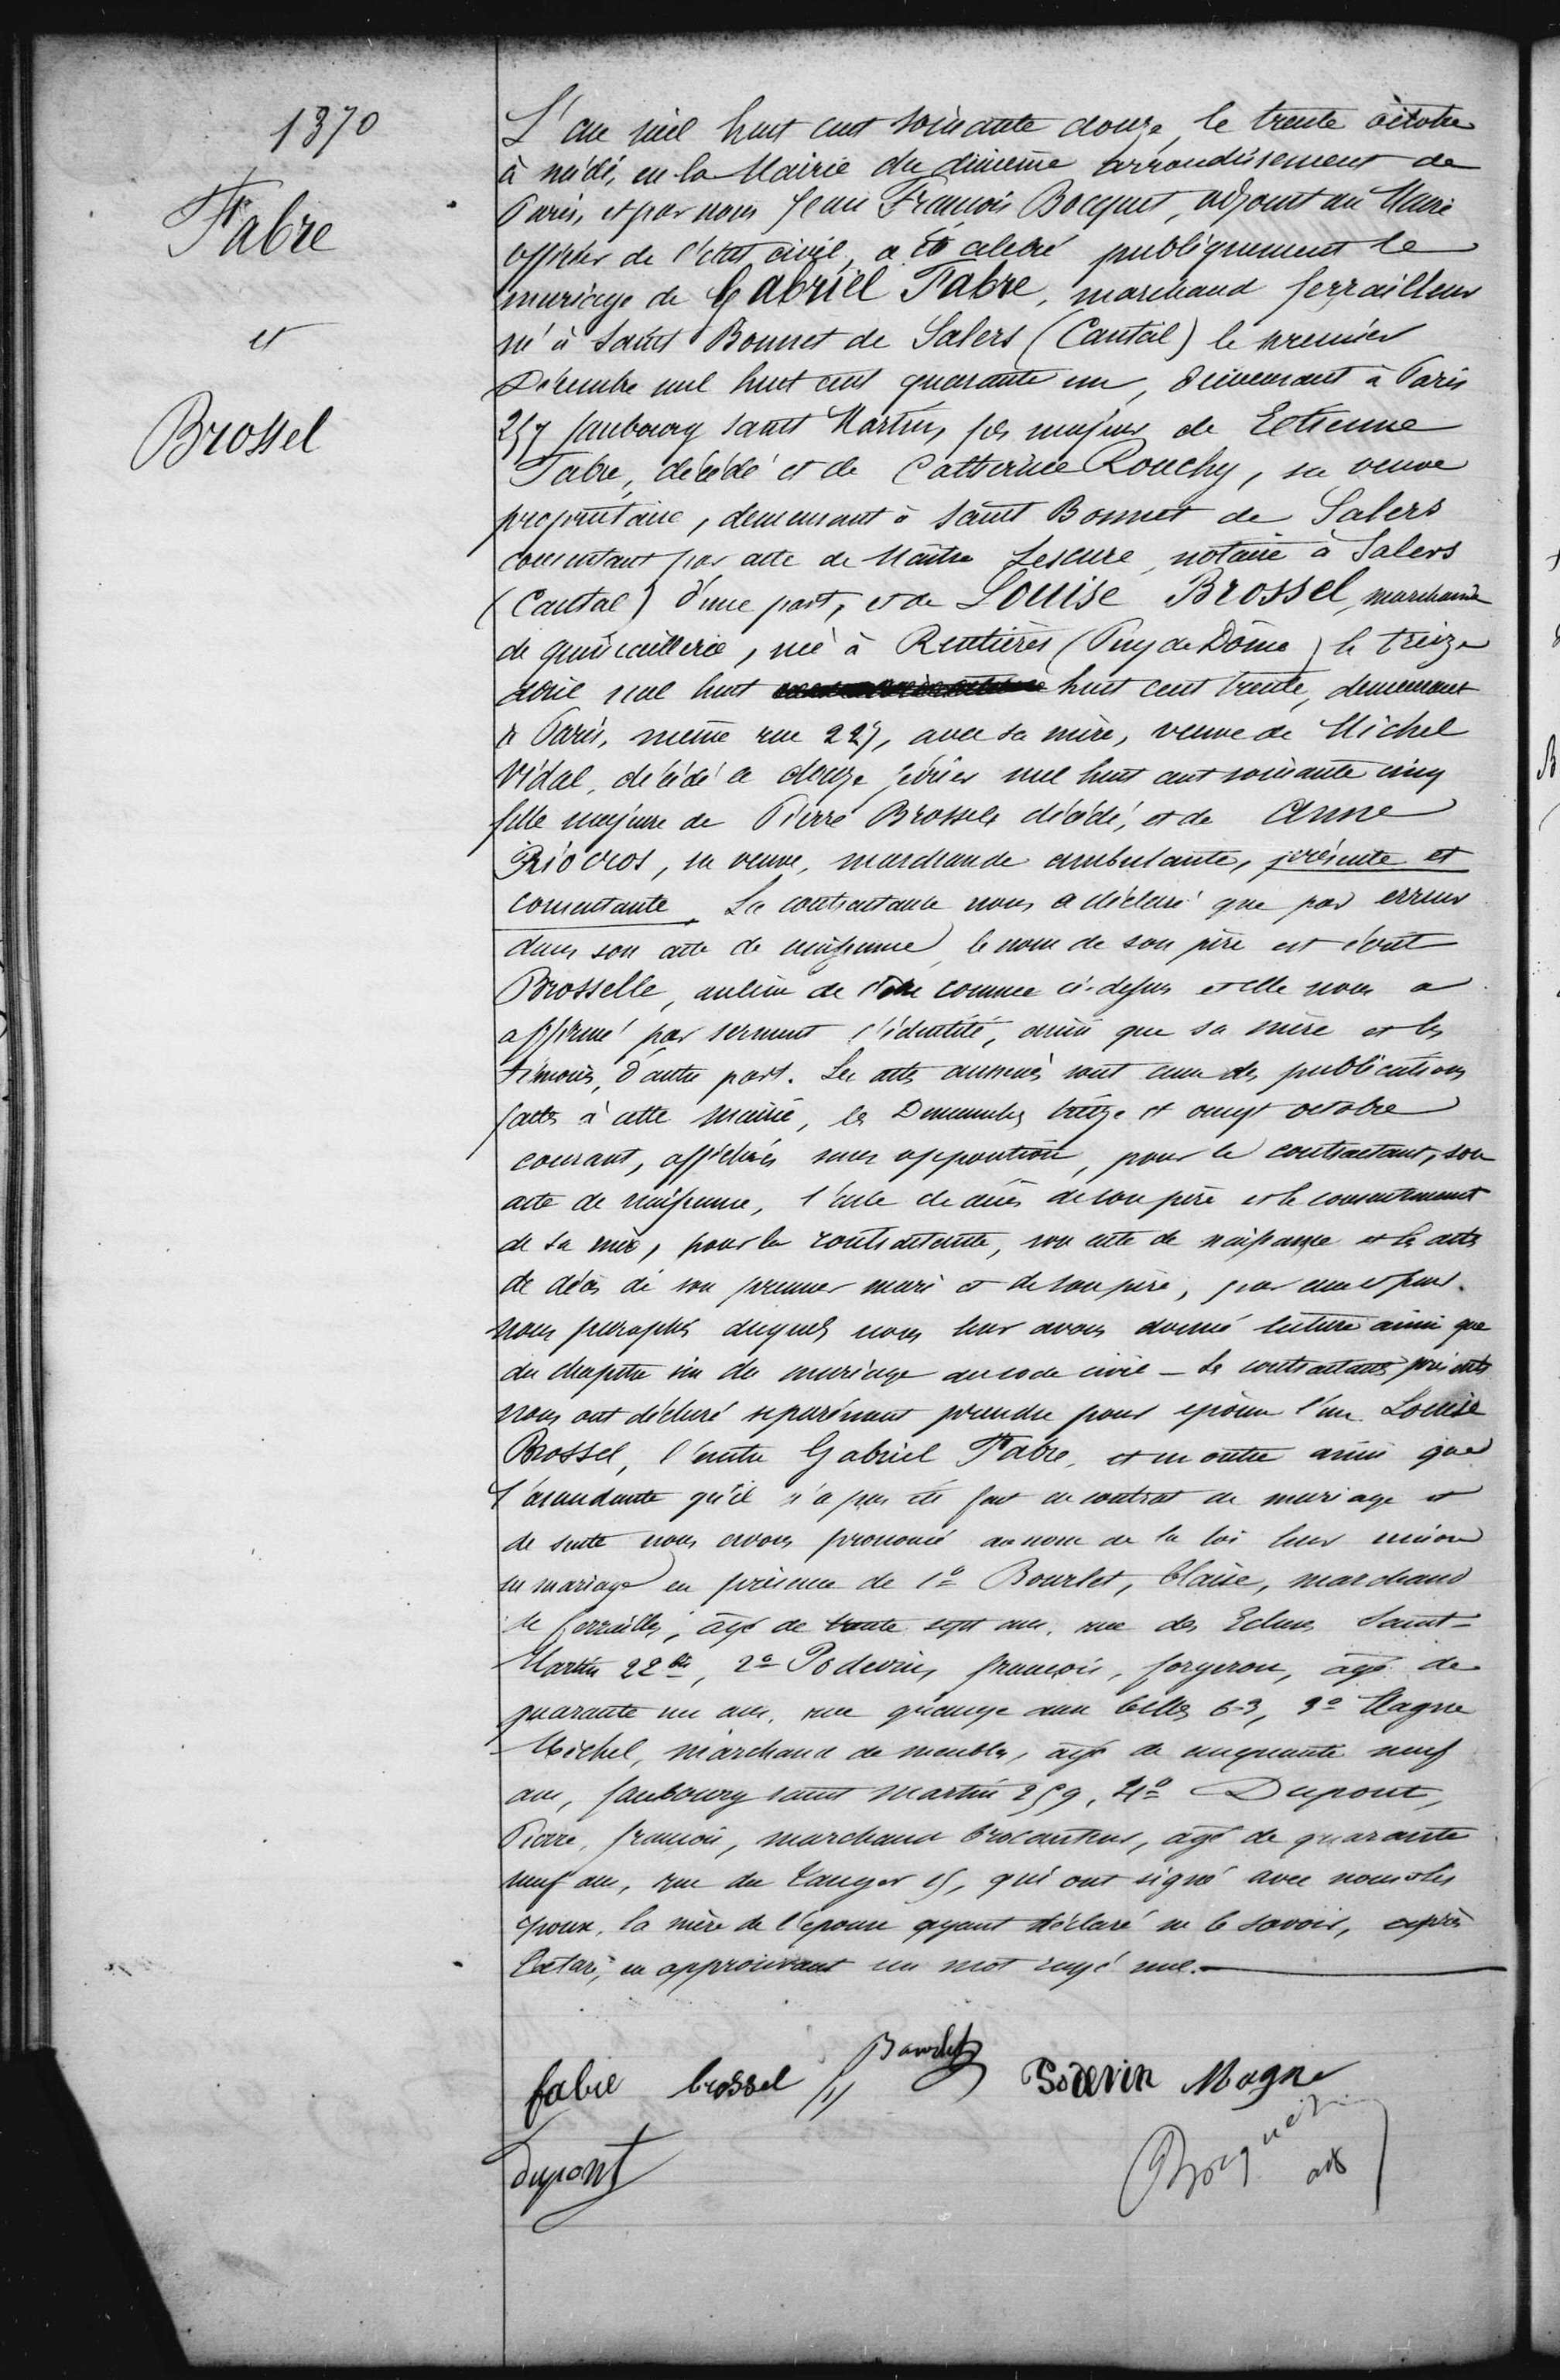 1370
Fabre
et
Brossel
L'an mil huit cent soixante douze, le trente octobre
à midi, en la Mairie du dixième arrondissement de
Paris, et par nous Jean François Bocquet, adjoint au Maire
officier de l'état civil, a été célébré publiquement le
mariage de Gabriel Fabre, marchand ferrailleur
né à Saint Bonnet de Salers (Cantal) le premier
Décembre mil huit cent quarante un, demeurant à Paris
257 faubourg saint Martin, fils majeur de Etienne
Fabre, décédé et de Catherine Rouchy, sa veuve
propriétaire, demeurant à Saint Bonnet de Salers
consentant par acte de Maître Lescure, notaire à Salers
(Cantal) d'une part, et de Louise Brossel, marchande
de quincaillerie, née à Rentières (Puy de Dôme) le treize
avril mil huit huit cent trente, demeurant
à Paris, même rue 227, avec sa mère, veuve de Michel
Vidal, décédé le douze février mil huit cent soixante cinq
fille majeure de Pierre Brossel, décédé, et de Anne
Riocros, sa veuve, marchande ambulante, présente et
consentante. La contractante nous a déclaré que par erreur
dans son acte de naissance, le nom de son père est écrit
Brosselle, au lieu de l'être comme ci-dessus et elle nous a
affirmé par serment l'identité, ainsi que sa mère et les
témoins, d'autre part. Les actes annexés sont ceux des publications
faites à cette Mairie, les Dimanches treize et vingt octobre
courant, affichées sans opposition, pour le contractant, son
acte de naissance, l'acte de décès de son père et le consentement
de sa mère, pour la contractante, son acte de naissance et les actes
de décès de son premier mari et de son père, par eux et par
nous paraphés desquels nous leur avons donné lecture ainsi que
du chapitre six du mariage au code civil – Les contractants présents
nous ont déclaré séparément prendre pour époux l'un Louise
Brossel, l'autre Gabriel Fabre, et en outre ainsi que
l'ascendante qu'il n'a pas été fait de contrat de mariage et
de suite nous avons prononcé au nom de la loi leur union
en mariage en présence de 1º Bourlet, Blaise, marchand
de ferrailles, âgé de trente sept ans, rue des Ecluses Saint-
Martin 22 bis, 2º Podevin, françois, forgeron, âgé de
quarante un ans, rue grange aux belles 63, 3º Magne
Michel, marchand de meubles, âgé de cinquante neuf
ans, faubourg saint Martin 259, 4º Dupont,
Pierre, françois, marchand brocanteur, âgé de quarante
neuf ans, rue de Tanger 15, qui ont signé avec nous et les
époux, la mère de l'épouse ayant déclaré ne le savoir, après
lecture, en approuvant un mot rayé nul.
fabre brossel Bourlet Podevin Magne
Dupont
Bocquet
adj